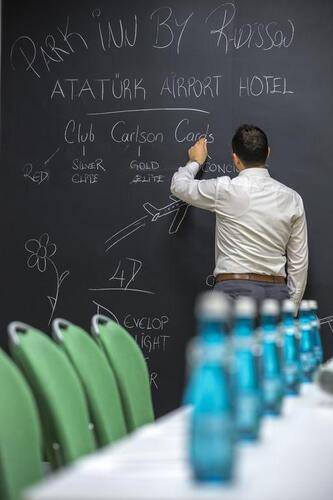 Park Inn By Radisson
ATATÜRK AIRPORT HOTEL
Club Carlson Cards
RED SILVER GOLD CONCI
ELITE ELITE
4D
EVELOP
LIGHT